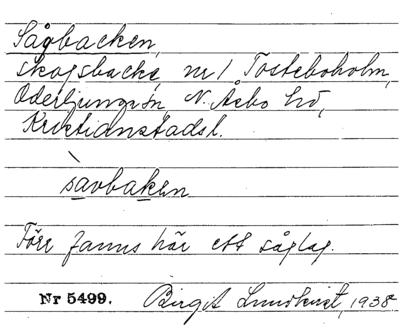 Sågbacken,
skogsbacke nr 1 Tosteboholm,
Oderljunga sn N. Åsbo hd,
Kristianstads l.
savbaken
Förr fanns här ett såglag.
Nr 5499. Birgit Lundkvist, 1938